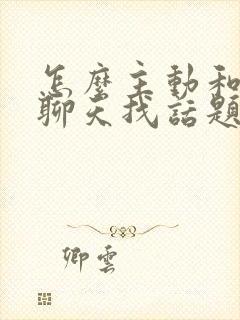 怎麼主動和
聊天找話題
卿雲